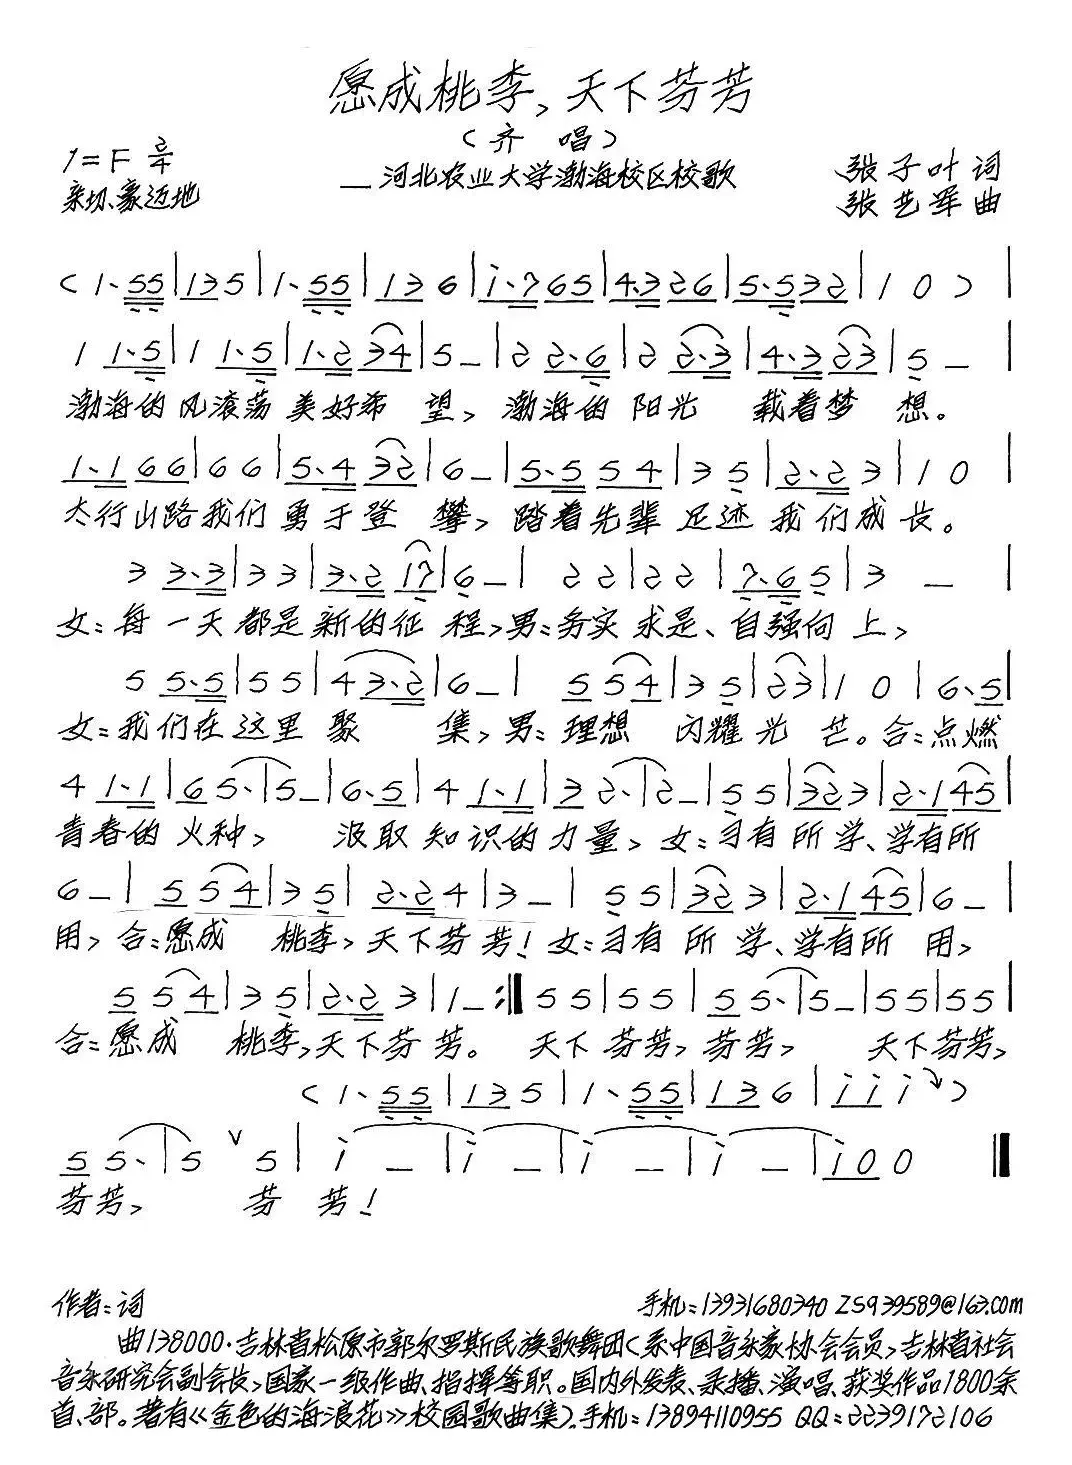 愿成桃李,天下芬芳
(齐 唱)
1=F 2/4
——河北农业大学渤海校区校歌
张子叶 词
亲切、豪迈地
张艺军 曲
(1·55|135|1·55|136|i·765|4·326|5·532|10)|
1 1·5|1 1·5|1·234|5–|2 2·6|2 2·3|4·323|5–|
渤海的风滚荡美好希望, 渤海的阳光 载着梦想。
1·166|66|5·432|6–|5·554|35|2·23|10|
太行山路我们勇于登攀, 踏着先辈足迹我们成长。
3 3·3|33|3·217|6–|22|22|7·65|3–|
女:每一天都是新的征程,男:务实求是、自强向上,
5 5·5|55|43·2|6–|554|35|23|10|6·5|
女:我们在这里聚集,男:理想 闪耀光芒。合:点燃
4 1·1|65·|5–|6·5|4 1·1|32·|2–|55|323|2·145|
青春的火种, 汲取知识的力量,女:习有所学、学有所
6–|554|35|2·24|3–|55|323|2·145|6–|
用,合:愿成 桃李,天下芬芳!女:习有所学、学有所用,
554|35|2·23|1–:‖55|55|55·|5–|55|55|
合:愿成 桃李,天下芬芳。 天下芬芳,芬芳, 天下芬芳,
(1·55|135|1·55|136|iii)
55·|5 ∨5|i–|i–|i–|i–|i00‖
芬芳, 芬芳!
作者:词 手机:13931680340 ZS939589@163.com
曲138000·吉林省松原市郭尔罗斯民族歌舞团(系中国音乐家协会会员,吉林省社会
音乐研究会副会长,国家一级作曲、指挥等职。国内外发表、录播、演唱、获奖作品1800余
首、部。著有《金色的海浪花》校园歌曲集)。手机:13894110955 QQ:2239172106